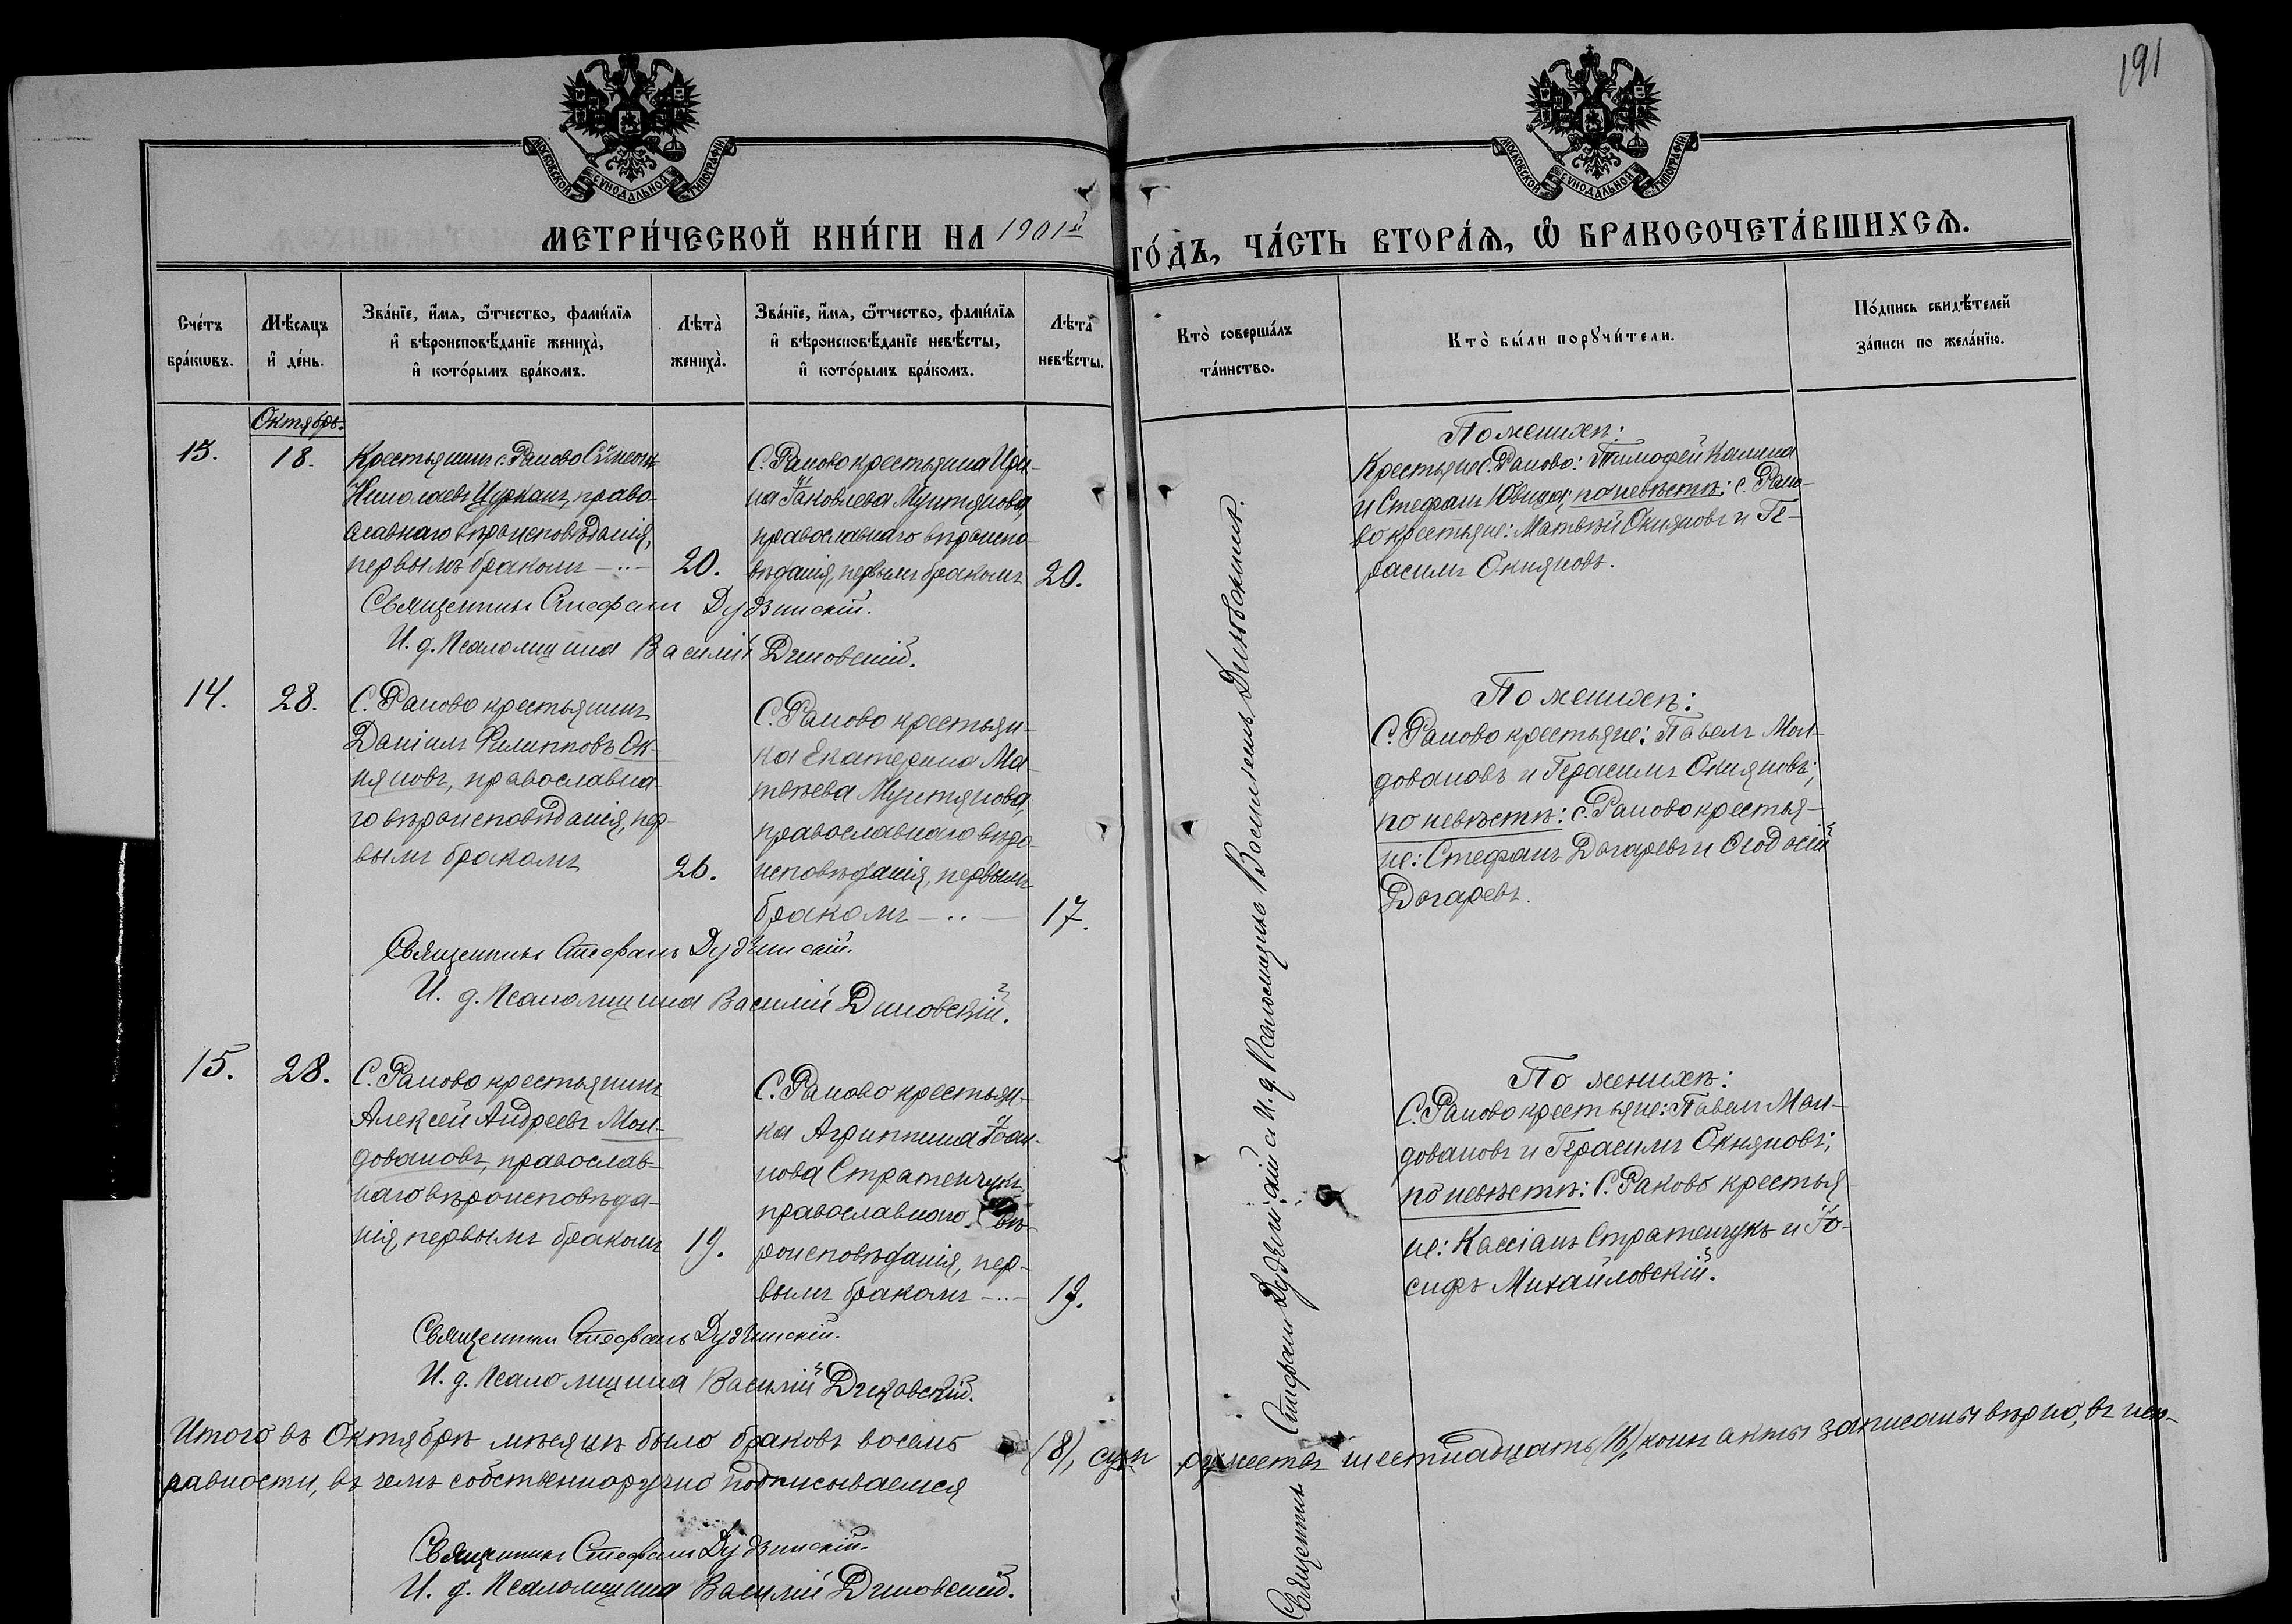 191
МОСКОВСКОЙ СѴНОДАЛЬНОЙ ТИПОГРАФІИ
МОСКОВСКОЙ СѴНОДАЛЬНОЙ ТИПОГРАФІИ
МЕТРИ́ЧЕСКОЙ КНИ́ГИ НА 1901й ГО́ДЪ, ЧА́СТЬ ВТОРА́Ѧ, Ѡ БРАКОСОЧЕТА́ВШИХСѦ.
Сче́тъ
бра́кωвъ.
Мѣ́сяцъ
и҆ де́нь.
Зва́нїе, и҆́мѧ, ѻ҆́тчество, фами́лїѧ
и҆ вѣроисповѣ́данїе жениха̀,
и҆ кото́рымъ бра́комъ.
Лѣта̀
жениха̀.
Зва́нїе, и҆́мѧ, ѻ҆́тчество, фами́лїѧ
и҆ вѣроисповѣ́данїе невѣ́сты,
и҆ кото́рымъ бра́комъ.
Лѣта̀
невѣ́сты.
Кто̀ соверша́лъ
та́инство.
Кто̀ бы́ли порꙋчи́тели.
По́дпись свидѣ́телей
за́писи по жела́нїю.
Октябрь.
13.
18.
Крестьянинъ с. Раково Сѵмеонъ
Николаевъ Цурканъ, право-
славнаго вѣроисповѣданія,
первымъ бракомъ —..—
20.
С. Раково крестьянка Ири-
на Іаковлева Мунтянова,
православнаго вѣроиспо-
вѣданія, первымъ бракомъ
20.
По женихѣ:
Крестьяне с. Раково: Тимофей Калина
и Стефанъ; по невѣстѣ: с. Рако-
во крестьяне: Матвѣй Окняновъ и Ге-
расимъ Окняновъ.
Священникъ Стефанъ Дудзинскій.
И. д. Псаломщика Василій Диковскій.
14.
28.
С. Раково крестьянинъ
Даніилъ Филипповъ Ок-
няновъ, православна-
го вѣроисповѣданія, пер-
вымъ бракомъ
26.
С. Раково крестьян-
ка Екатерина Ма-
твѣева Мунтянова,
православнаго вѣро-
исповѣданія, первымъ
бракомъ —..—
17.
По женихѣ:
С. Раково крестьяне: Павелъ Мол-
довановъ и Герасимъ Окняновъ;
по невѣстѣ: с. Раково крестья-
не: Стефанъ Догаревъ и Ѳеодосій
Догаревъ.
Священникъ Стефанъ Дудзинскій.
И. д. Псаломщика Василій Диковскій.
15.
28.
С. Раково крестьянинъ
Алексей Андреевъ Мол-
довановъ, православ-
наго вѣроисповѣда-
нія, первымъ бракомъ
19.
С. Раково крестьян-
ка Агриппина Іоан-
нова Стратенчукъ,
православнаго вѣ-
роисповѣданія, пер-
вымъ бракомъ —..—
19.
По женихѣ:
С. Раково крестьяне: Павелъ Мол-
довановъ и Герасимъ Окняновъ;
по невѣстѣ: С. Раково крестья-
не: Кассіанъ Стратенчукъ и Іо-
сифъ Михайловскій.
Священникъ Стефанъ Дудзинскій.
И. д. Псаломщика Василій Диковскій.
Священникъ Стефанъ Дудзинскій и И. д. Псаломщика Василій Диковскій.
Итого въ Октябрѣ мѣсяцѣ было браковъ восемь (8), супружествъ шестнадцать (16) коихъ акты записаны вѣрно, въ исп-
равности, въ чемъ собственноручно подписываемся
Священникъ Стефанъ Дудзинскій.
И. д. Псаломщика Василій Диковскій.